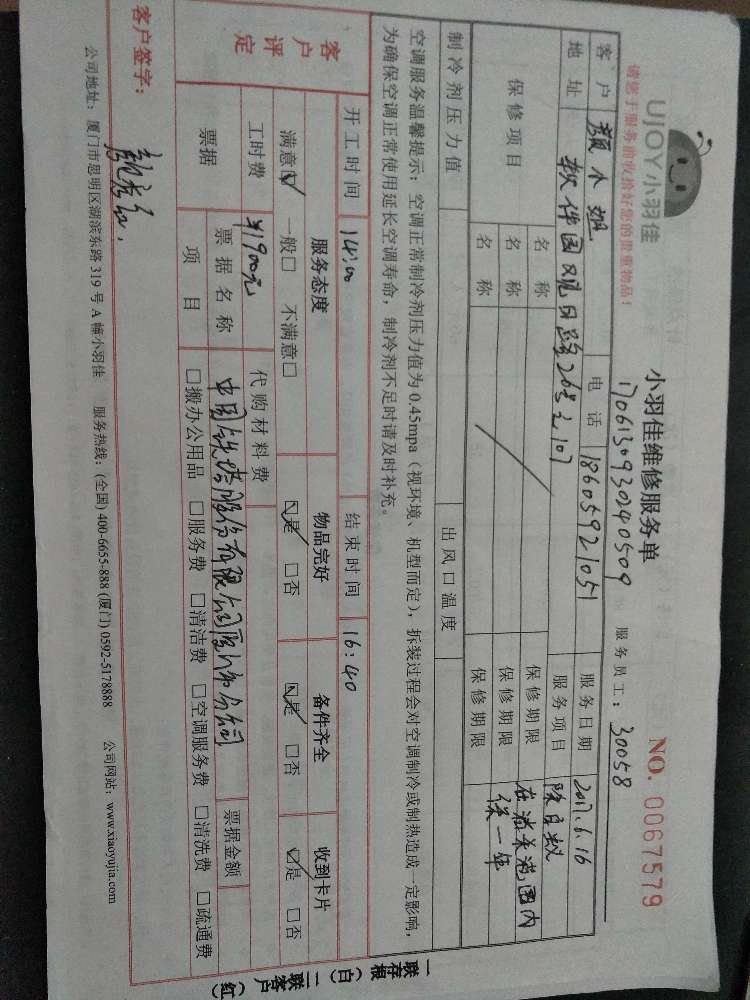 UJOY小羽佳
请您于服务前收拾好您的贵重物品!
小羽佳维修服务单
NO. 0067579
1706130930240509
服务员工: 30058
客户 颜小姐 电话 18605921051 服务日期 2017.6.16
地址 软件园观日路26号之107 服务项目 除白蚁
保修项目 名称 保修期限 在消杀范围内
名称 保修期限 保一年
名称 保修期限
制冷剂压力值 出风口温度
空调服务温馨提示: 空调正常制冷剂压力值为0.45mpa(视环境、机型而定),拆装过程会对空调制冷或制热造成一定影响,
为确保空调正常使用延长空调寿命,制冷剂不足时请及时补充。
开工时间 14:00 结束时间 16:40
客户评定 服务态度 物品完好 备件齐全 收到卡片
满意☑ 一般□ 不满意□ ☑是 □否 ☑是 □否 ☑是 □否
工时费 ¥1900元 代购材料费
票据 票据名称 中国铁塔股份有限公司厦门市分公司 票据金额
项目 □搬办公用品 □服务费 □清洁费 □空调服务费 □清洗费 □疏通费
客户签字:
公司地址: 厦门市思明区湖滨东路319号A幢小羽佳 服务热线: (全国) 400-6655-888 (厦门) 0592-5178888 公司网站: www.xiaoyujia.com
一联存根(白) 二联客户(红)